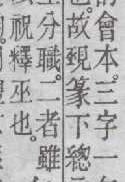 會本。三字一
也。故覡篆下緫
分職。二者雖
祝釋巫也。